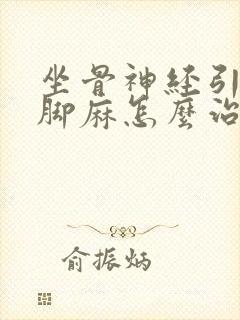 坐骨神经引
脚麻怎麼治
俞振炳